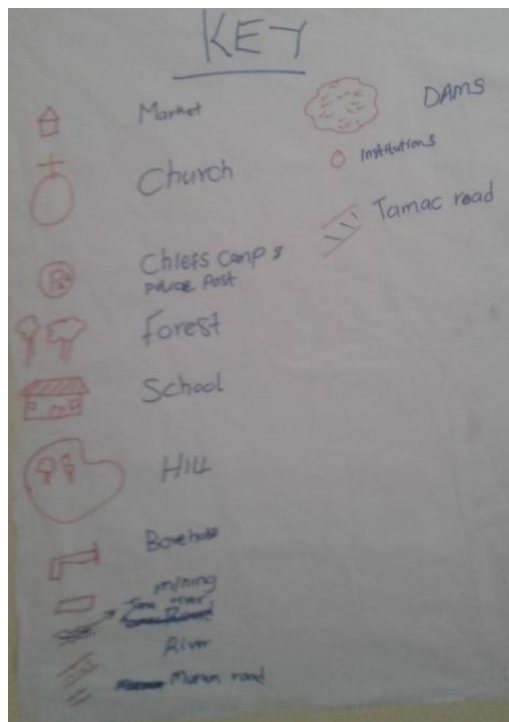 KEY
Market
Church
Chiefs Camp &
Police Post
Forest
School
Hill
Borehole
mining
River
River
Murram road
DAMS
Institutions
Tamac road